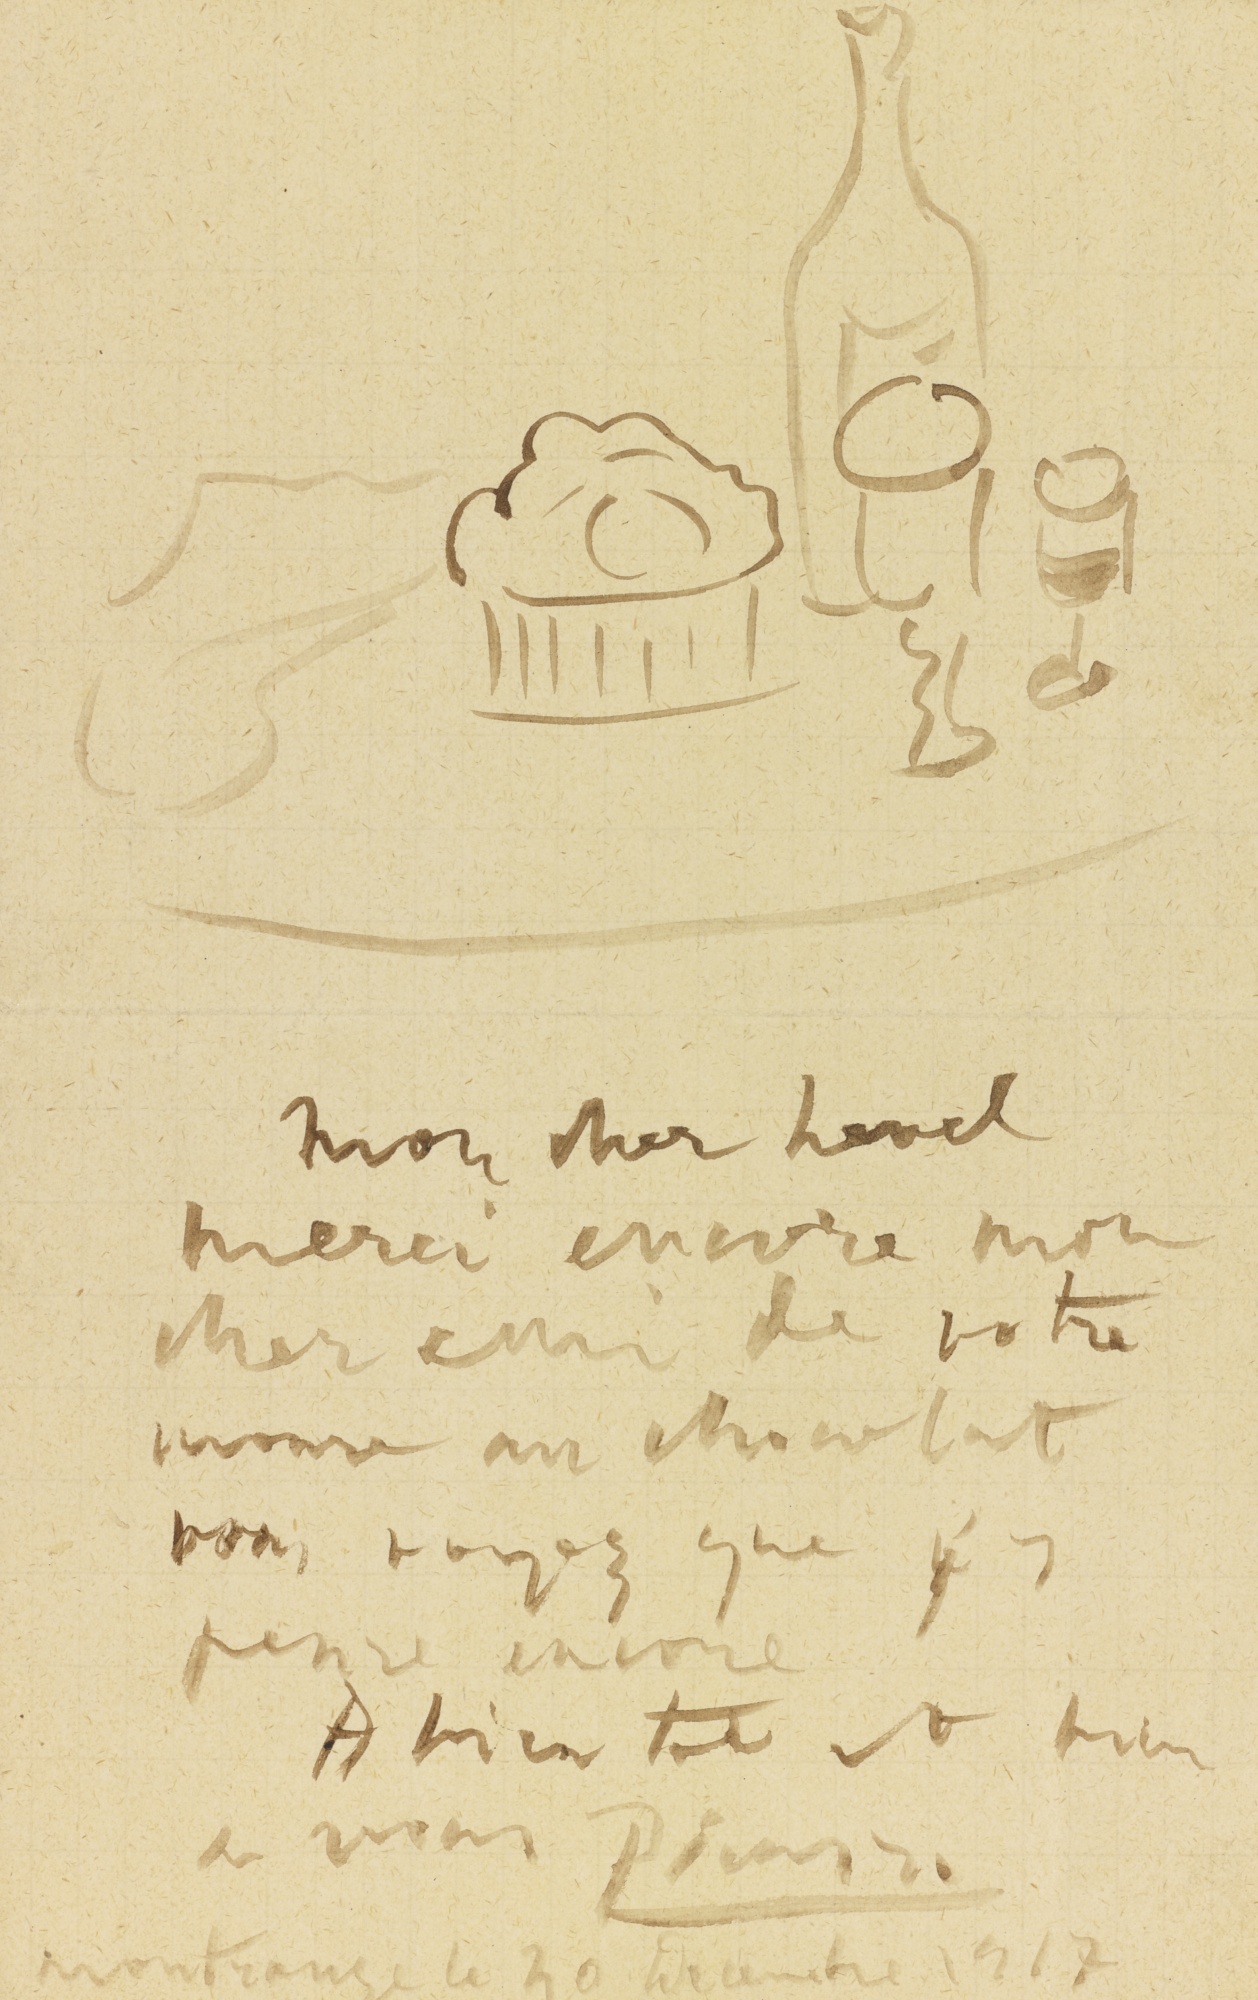 Mon cher Level
merci encore mon
cher ami de votre
mousse au chocolat
vous voyez que j'y
pense encore
A bien tot et bien
a vous Picasso
montrouge le 30 decembre 1917